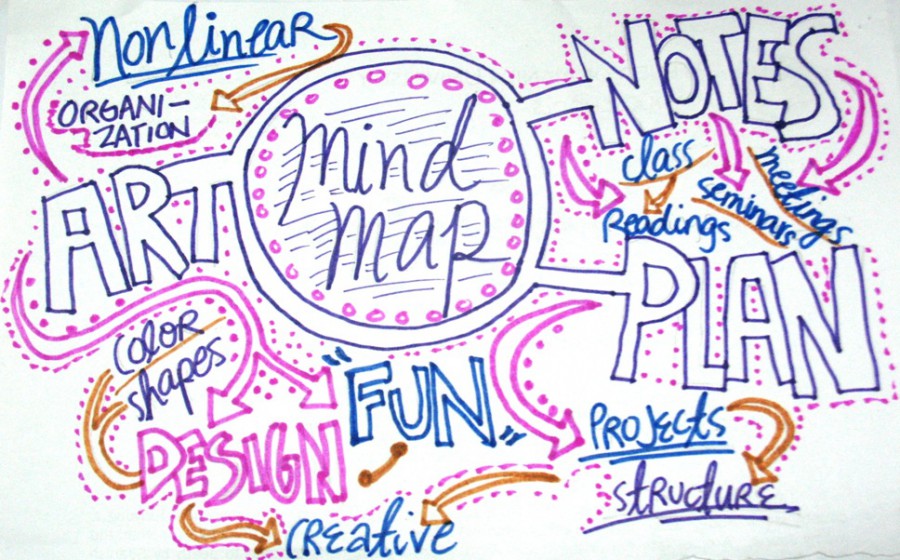 Nonlinear
ORGANI-
ZATION
ART
mind
map
NOTES
class
Readings
seminars
meetings
PLAN
COLOR
shapes
DESIGN
"FUN"
PROJECTS
structure
creative